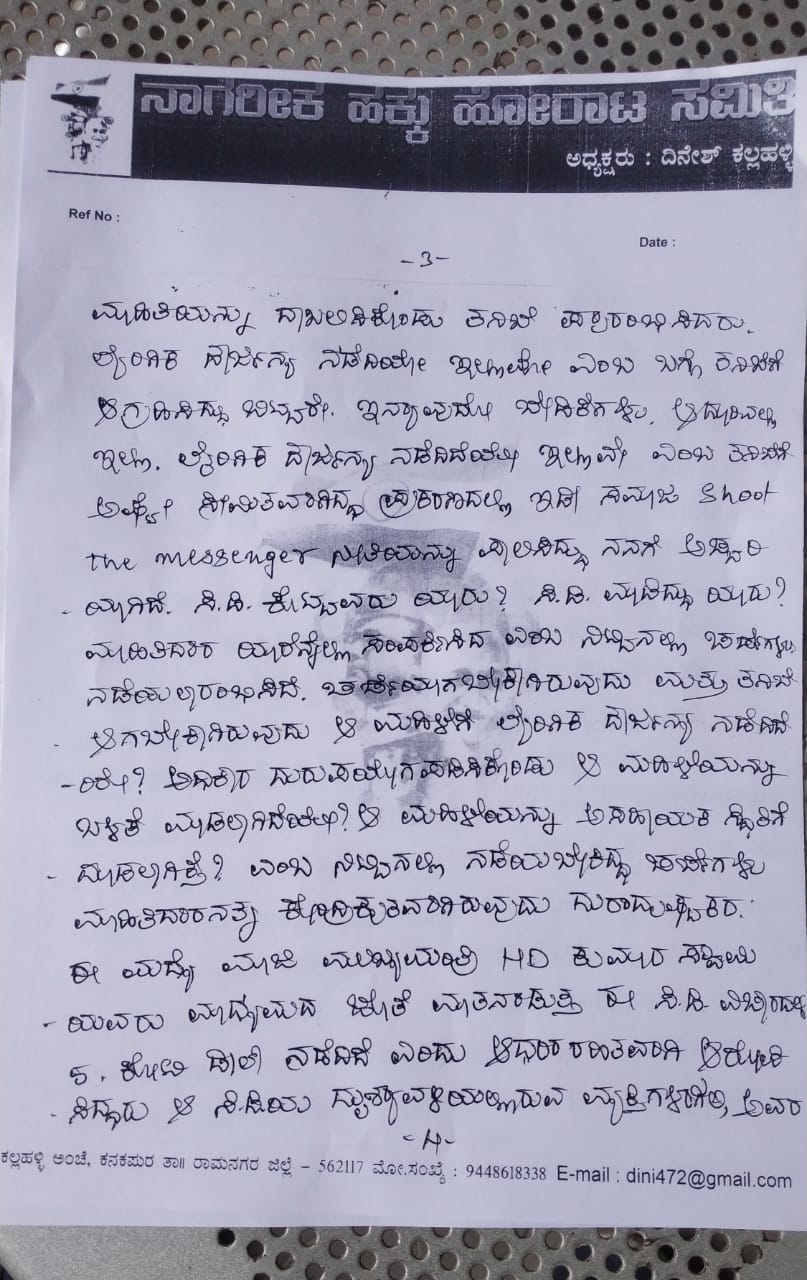 ನಾಗರೀಕ ಹಕ್ಕು ಹೋರಾಟ ಸಮಿತಿ
ಅಧ್ಯಕ್ಷರು : ದಿನೇಶ್ ಕಲ್ಲಹಳ್ಳಿ
Ref No :
Date :
-3-
ಮಾಹಿತಿಯನ್ನು ದಾಖಲಿಸಿಕೊಂಡು ತನಿಖೆ ಪ್ರಾರಂಭಿಸಿದರು.
ಲೈಂಗಿಕ ದೌರ್ಜನ್ಯ ನಡೆದಿದೆಯೋ ಇಲ್ಲವೋ ಎಂಬ ಬಗ್ಗೆ ತನಿಖೆಗೆ
ಆಗ್ರಹಿಸಿದ್ದು ಬಿಟ್ಟರೇ. ಇನ್ಯಾವುದೇ ಬೇಡಿಕೆಗಳು, ಅದ್ದರಲ್ಲಿ
ಇಲ್ಲಾ. ಲೈಂಗಿಕ ದೌರ್ಜನ್ಯ ನಡೆದಿದೆಯೇ ಇಲ್ಲಾವೇ ಎಂಬ ತನಿಖೆಗೆ
ಅಷ್ಟೇ ಸೀಮಿತವಾಗಿದ್ದ ಪ್ರಕರಣದಲ್ಲಿ ಇಡೀ ಸಮಾಜ Shoot
the messenger ನೀತಿಯನ್ನು ಪಾಲಿಸಿದ್ದು ನನಗೆ ಅಚ್ಚರಿ
- ಯಾಗಿದೆ. ಸಿ.ಡಿ. ಕೊಟ್ಟವರು ಯಾರು? ಸಿ.ಡಿ. ಮಾಡಿದ್ದು ಯಾರು?
ಮಾಹಿತಿದಾರ ಯಾರನ್ನೆಲ್ಲಾ ಸಂಪರ್ಕಿಸಿದ ಎಂಬ ನಿಟ್ಟಿನಲ್ಲಿ ಚರ್ಚೆಗಳು
ನಡೆಯಲಾರಂಭಿಸಿದೆ. ಚರ್ಚೆಯಾಗಬೇಕಾಗಿರುವುದು ಮತ್ತು ತನಿಖೆ
- ಆಗಬೇಕಾಗಿರುವುದು ಆ ಮಹಿಳೆಗೆ ಲೈಂಗಿಕ ದೌರ್ಜನ್ಯ ನಡೆದಿದೆ
ಅಧಿಕಾರ ದುರುಪಯೋಗಪಡಿಸಿಕೊಂಡು ಆ ಮಹಿಳೆಯನ್ನು
ಬಳಕೆ ಮಾಡಲಾಗಿದೆಯೇ? ಆ ಮಹಿಳೆಯನ್ನು ಅಸಹಾಯಕ ಸ್ಥಿತಿಗೆ
- ದೂಡಲಾಗಿತ್ತೆ? ಎಂಬ ನಿಟ್ಟಿನಲ್ಲಿ ನಡೆಯಬೇಕಿದ್ದ ಚರ್ಚೆಗಳು
ಮಾಹಿತಿದಾರನತ್ತ ಕೇಂದ್ರಿಕೃತವಾಗಿರುವುದು ದುರಾದೃಷ್ಟಕರ.
ಈ ಮದ್ಯೆ ಮಾಜಿ ಮುಖ್ಯಮಂತ್ರಿ HD ಕುಮಾರಸ್ವಾಮಿ
- ಯವರು ಮಾಧ್ಯಮದ ಜೊತೆ ಮಾತನಾಡುತ್ತ ಈ ಸಿ.ಡಿ. ವಿಚಾರದಲ್ಲಿ
5. ಕೋಟಿ ಡೀಲ್ ನಡೆದಿದೆ ಎಂದು ಆಧಾರರಹಿತವಾಗಿ ಆರೋಪಿ
- ಸಿದ್ದಾರು ಆ ಸಿ.ಡಿಯ ದೃಶ್ಯಾವಳಿಯಲ್ಲಿರುವ ವ್ಯಕ್ತಿಗಳಾಗಲಿ, ಅವರ
-4-
ಕಲ್ಲಹಳ್ಳಿ ಅಂಚೆ, ಕನಕಪುರ ತಾ॥ ರಾಮನಗರ ಜಿಲ್ಲೆ - 562117 ಮೋ.ಸಂಖ್ಯೆ : 9448618338 E-mail : dini472@gmail.com